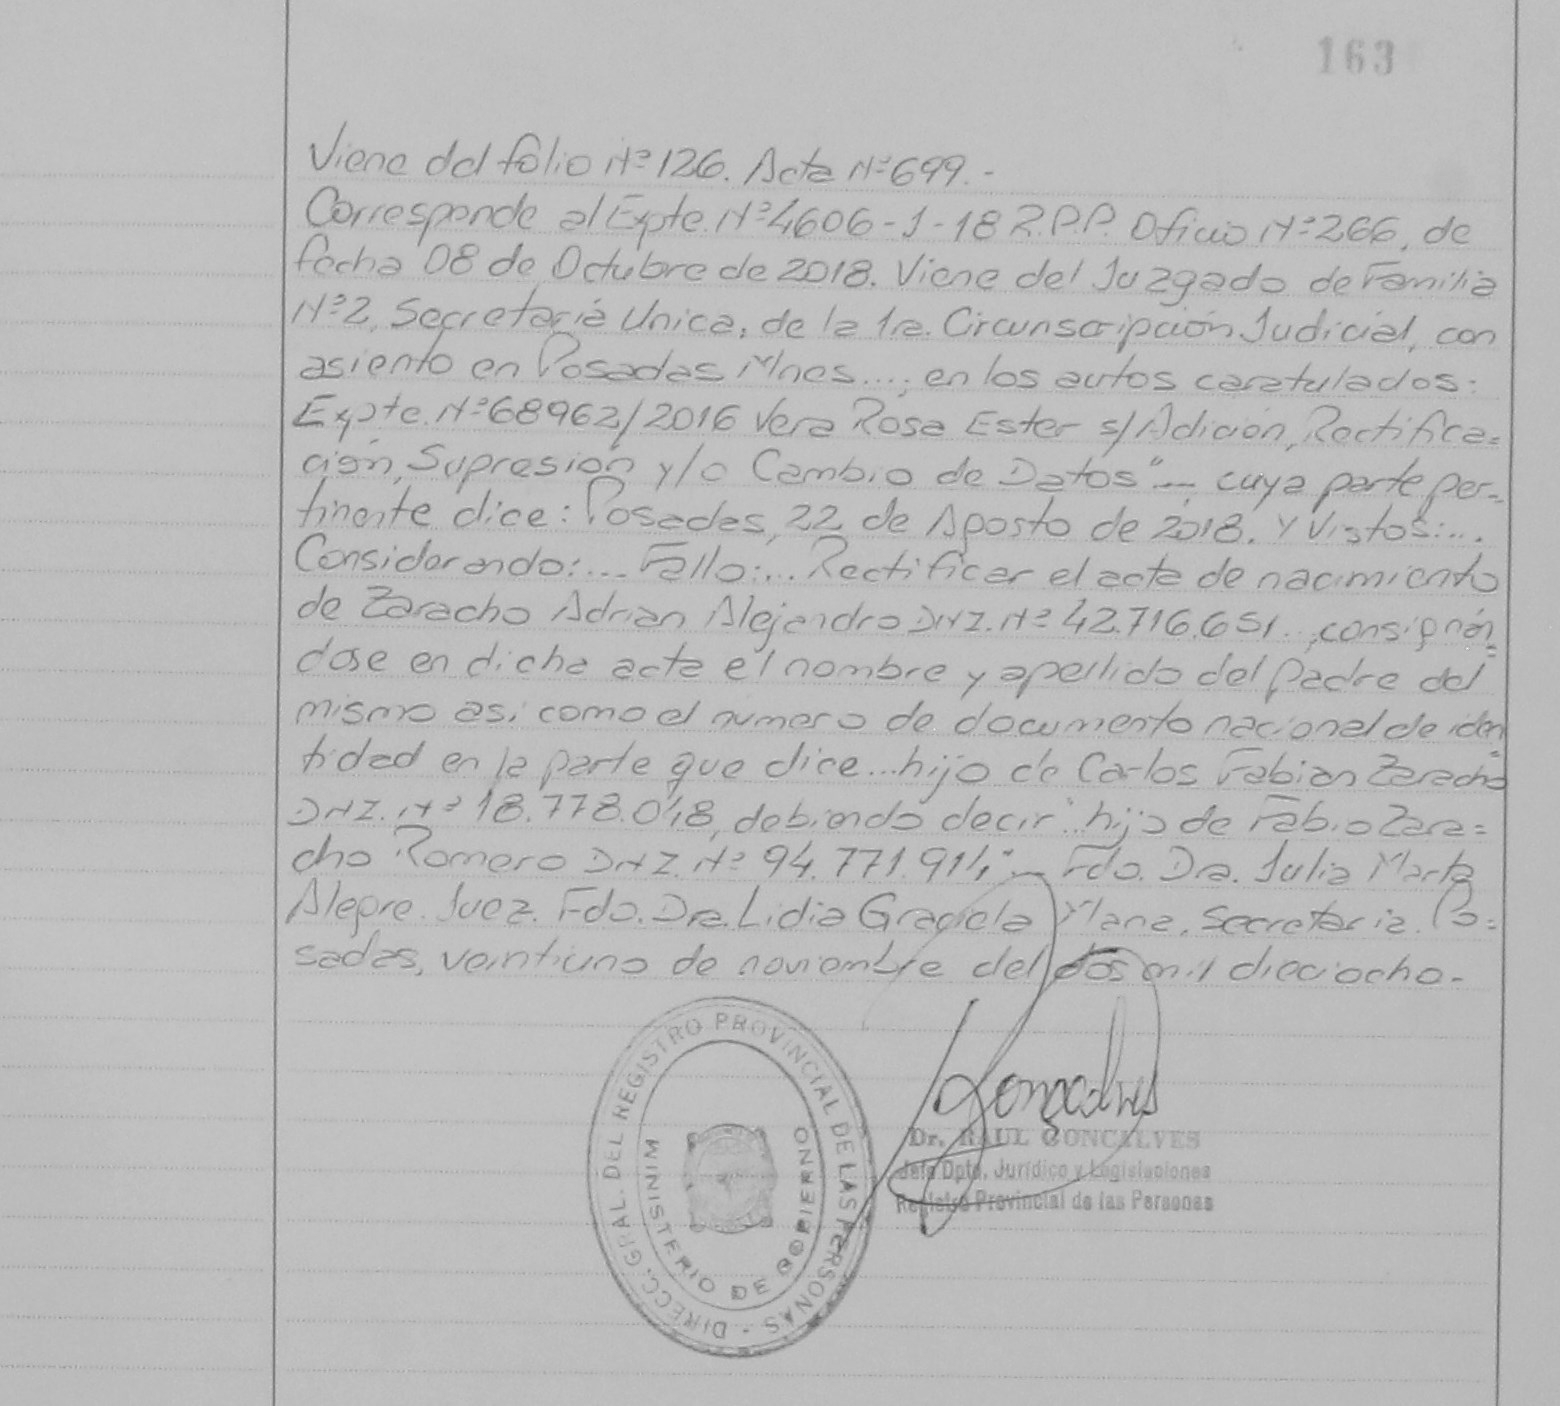 163
Viene del folio Nº 126. Acta Nº 699.-
Corresponde al Expte. Nº 4606-1-18 R.P.P. Oficio Nº 266, de
fecha 08 de Octubre de 2018. Viene del Juzgado de Familia
Nº2, Secretaría Unica, de la 1ra. Circunscripción Judicial, con
asiento en Posadas Mnes...; en los autos caratulados:
Expte. Nº 68962/2016 Vera Rosa Ester s/Adición, Rectifica=
ción, Supresión y/o Cambio de Datos"..., cuya parte per-
tinente dice: Posadas, 22 de Agosto de 2018. Y Vistos:...
Considerando:... Fallo:... Rectificar el acta de nacimiento
de Zaracho Adrian Alejandro DNI. Nº 42.716.651..., consignán=
dose en dicha acta el nombre y apellido del padre del
mismo asi como el numero de documento nacional de iden=
tidad en la parte que dice...hijo de Carlos Fabian Zaracho
DNI. Nº 18.778.048, debiendo decir "hijo de Fabio Zara=
cho Romero DNI. Nº 94.771.914"... Fdo. Dra. Julia Marta
Alegre. Juez. Fdo. Dra. Lidia Graciela Secretaria. Po=
sadas, veintiuno de noviembre del dos mil dieciocho-
DIRECC. GRAL. DEL REGISTRO PROVINCIAL DE LAS PERSONAS -
MINISTERIO DE GOBIERNO
Goncalves
Dr. RAUL GONCALVES
Jefe Dpto. Jurídico y Legislaciones
Registro Provincial de las Personas